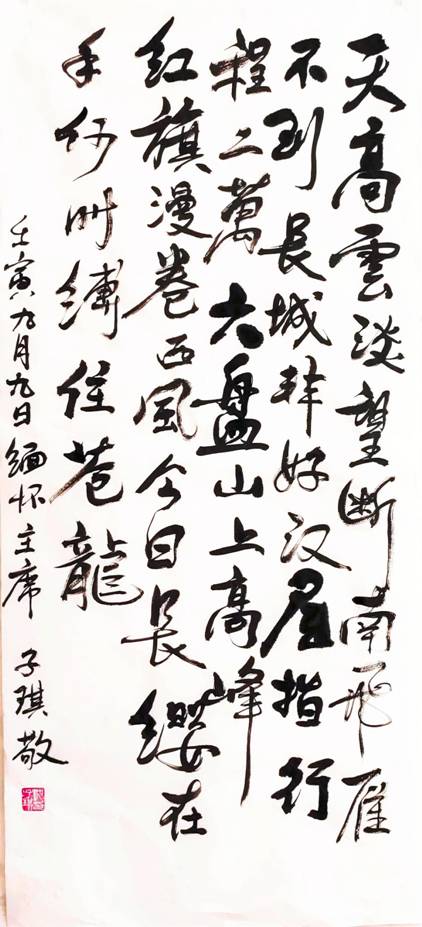 天高雲淡望断南飛雁
不到長城非好汉屈指行
程二萬六盤山上高峰
红旗漫卷西風今日長纓在
手何时缚住苍龍
壬寅九月九日缅怀主席 子琪敬